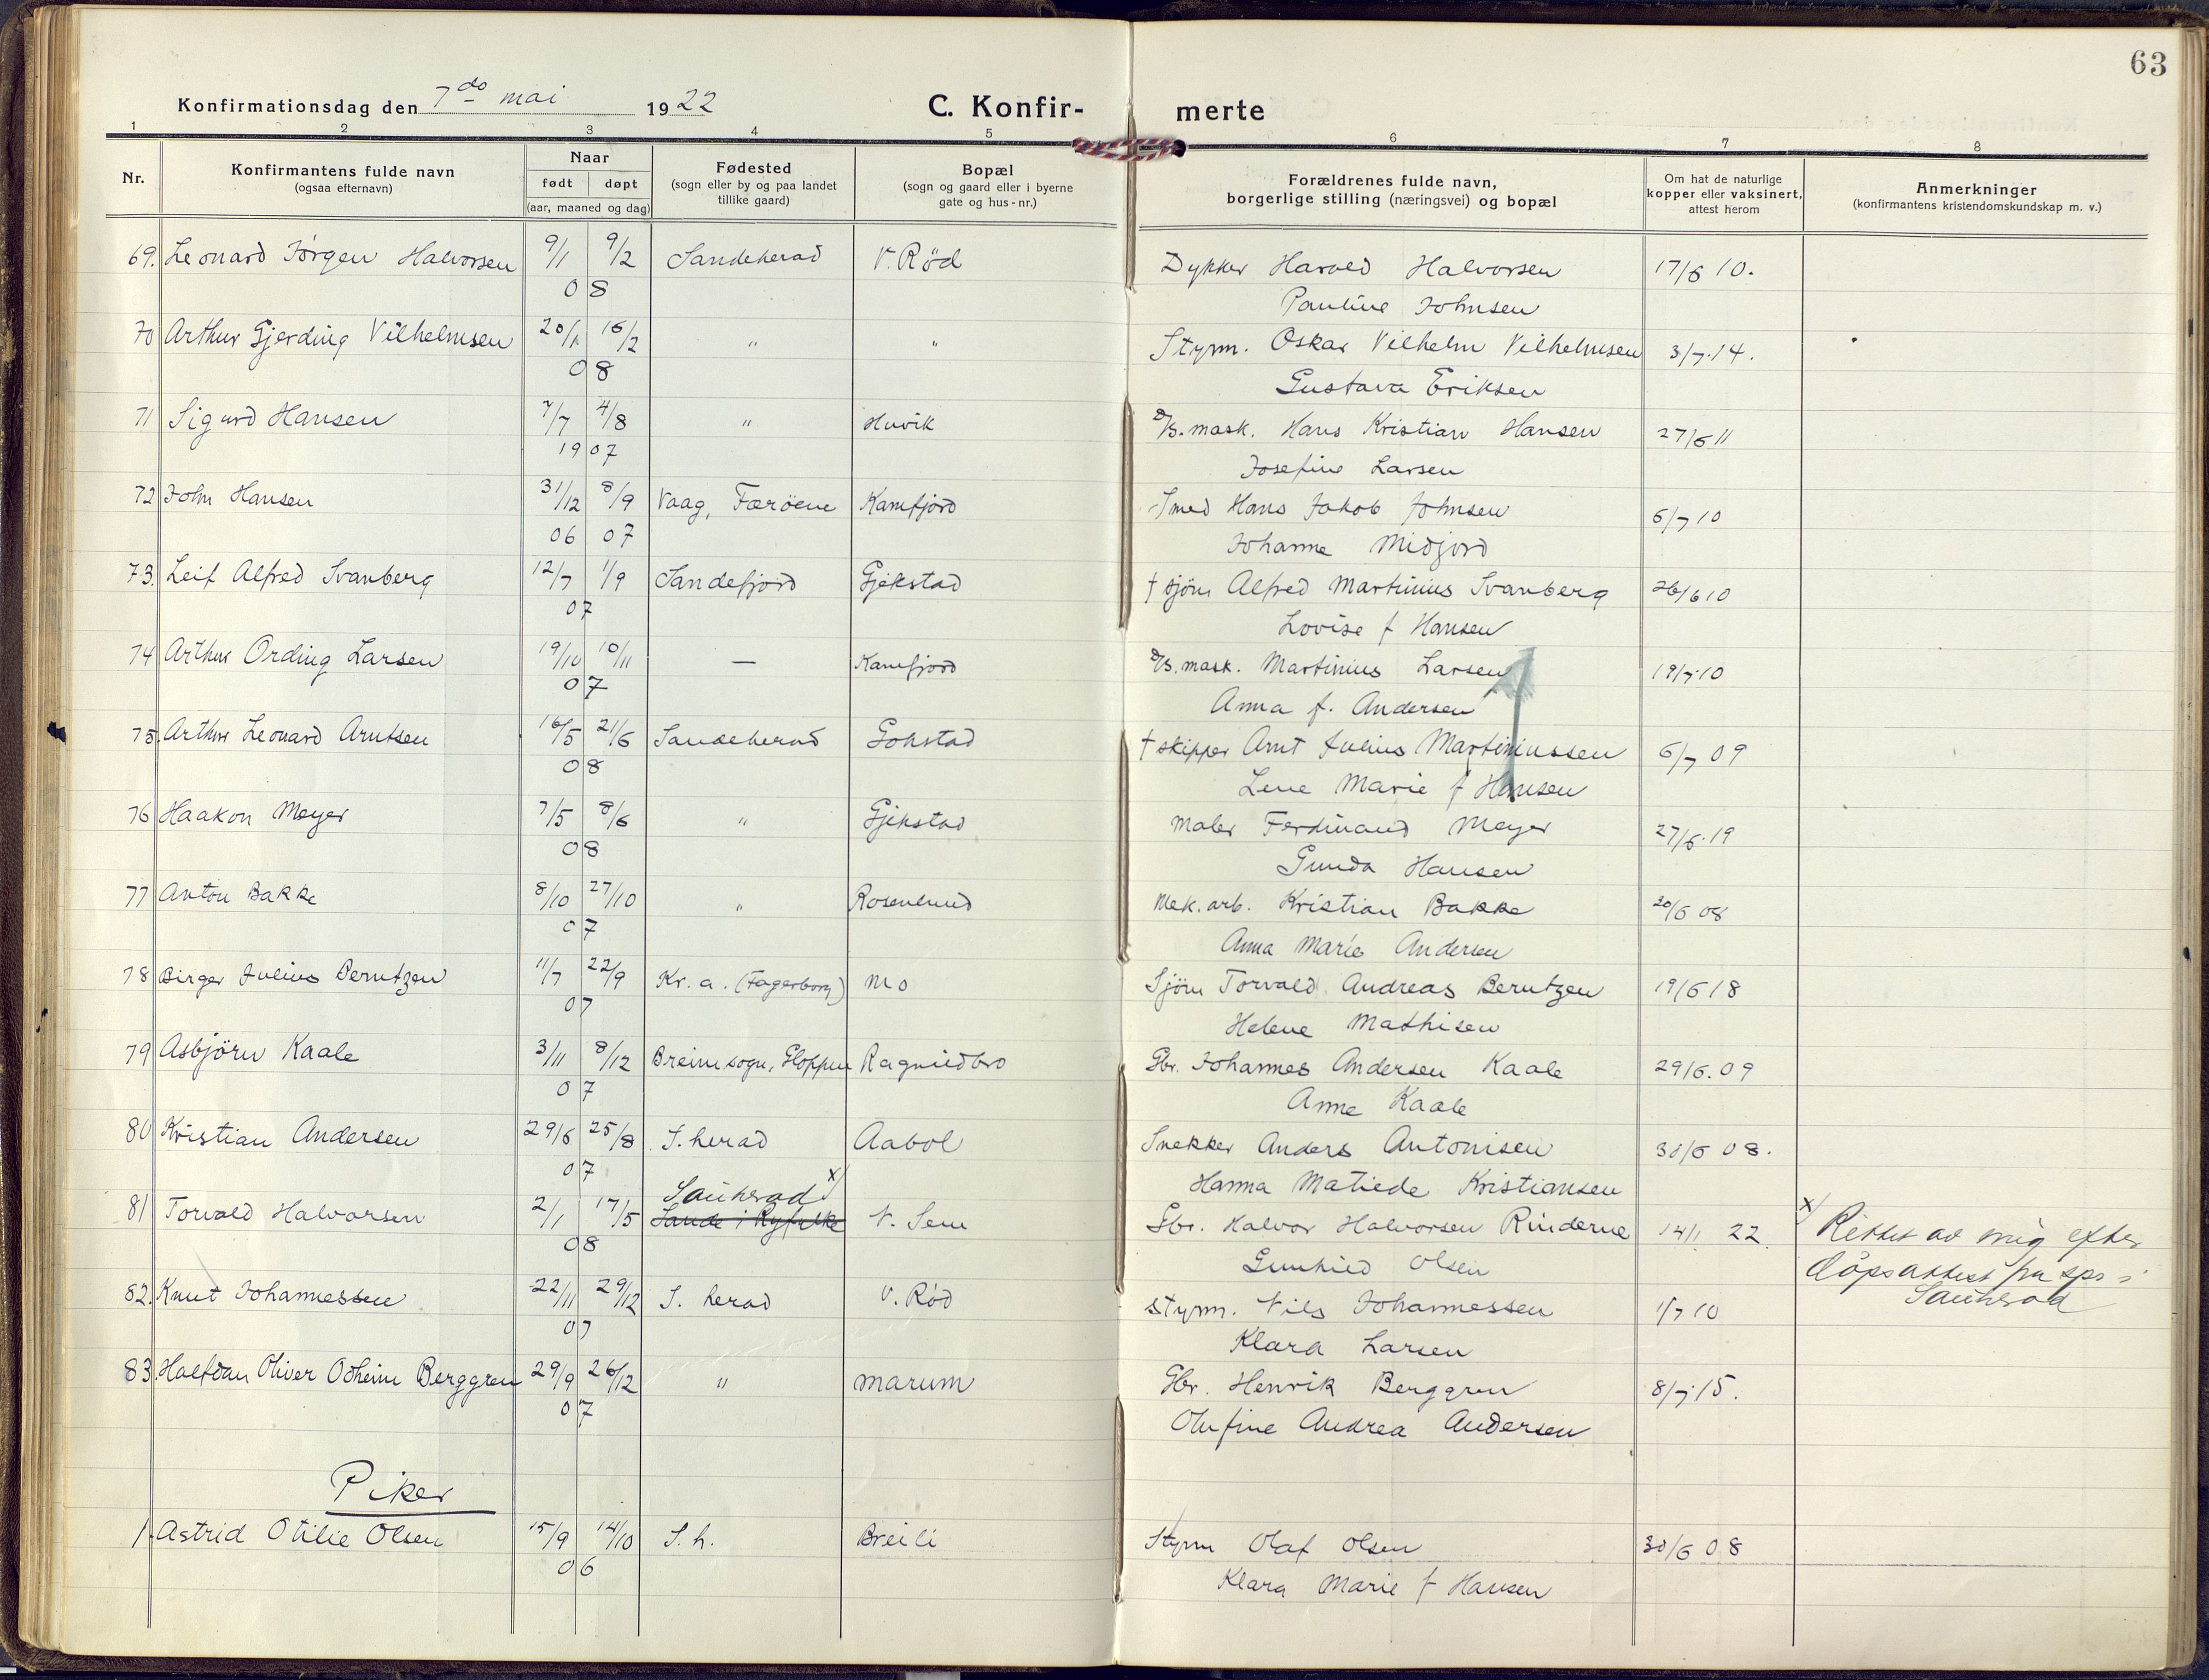 63
Konfirmationsdag den 7do mai 1922 C. Konfir- merte
1 2 3 4 5 6 7 8
Nr. Konfirmantens fulde navn (ogsaa efternavn) Naar født døpt (aar, maaned og dag) Fødested (sogn eller by og paa landet tillike gaard) Bopæl (sogn og gaard eller i byerne gate og hus-nr.) Forældrenes fulde navn, borgerlige stilling (næringsvei) og bopæl Om hat de naturlige kopper eller vaksinert, attest herom Anmerkninger (konfirmantens kristendomskundskap m. v.)
69. Leonard Jörgen Halvorsen 9/1 9/2 Sandeherad V. Rød Dykker Harald Halvorsen 17/6 10.
08 Pauline Johnsen
70 Arthur Gjerding Vilhelmsen 20/1 16/2 " " Styrm. Oskar Vilhelm Vilhelmsen 3/7.14.
08 Gustava Eriksen
71 Sigurd Hansen 7/7 4/8 " Huvik D/S. mask. Hans Kristian Hansen 27/6 11
1907 Josefine Larsen
72 John Hansen 31/12 8/9 Vaag, Færöene Kamfjord Smed Hans Jakob Johnsen 6/7 10
06 07 Johanne Midjord
73. Leif Alfred Svanberg 12/7 1/9 Sandefjord Gjekstad † sjöm Alfred Martinius Svanberg 26/6 10
07 Lovise f Hansen
74 Arthur Ording Larsen 19/10 10/11 — Kamfjord D/S. mask. Martinius Larsen 19/7.10
07 Anna f. Andersen
75. Arthur Leonard Arntsen 16/5 21/6 Sandeherad Gokstad † skipper Arnt Julius Martiniussen 6/7 09
08 Lene Marie f Hansen
76 Haakon Meyer 7/5 8/6 " Gjekstad Maler Ferdinand Meyer 27/6.19
08 Gunda Hansen
77 Anton Bakke 8/10 27/10 " Rosenlund Mek. arb. Kristian Bakke 30/6 08
07 Anna Marie Andersen
78 Birger Julius Berntzen 11/7 22/9 Kr. a. (Fagerborg) Mo Sjöm Torvald Andreas Berntzen 19/6 18
07 Helene Mathisen
79 Asbjörn Kaale 3/11 8/12 Breimsogn, Gloppen Ragnildbo Gbr. Johannes Andersen Kaale 29/6.09
07 Anne Kaale
80 Kristian Andersen 29/6 25/8 S. herad Aabol Snekker Anders Antonisen 30/6 08.
07 Hanna Matilde Kristiansen
Sauherad x)
81 Torvald Halvorsen 2/1 17/5 Sande i Ryfylke N. Sem Gbr. Halvor Halvorsen Rinderne 14/1 22. x) Rettet av mig efter
08 Gunhild Olsen döpsattest fra spr i
Sauherad
82. Knut Johannessen 22/11 29/12 S. herad V. Rød Styrm. Nils Johannessen 1/7 10
07 Klara Larsen
83. Halfdan Oliver Odheim Berggren 29/9 26/12 " Marum Gbr. Henrik Berggren 8/7.15.
07 Olufine Andrea Andersen
Piker
1. Astrid Otilie Olsen 15/9 14/10 S. h. Breili Styrm Olaf Olsen 30/6 08
06 Klara Marie f Hansen